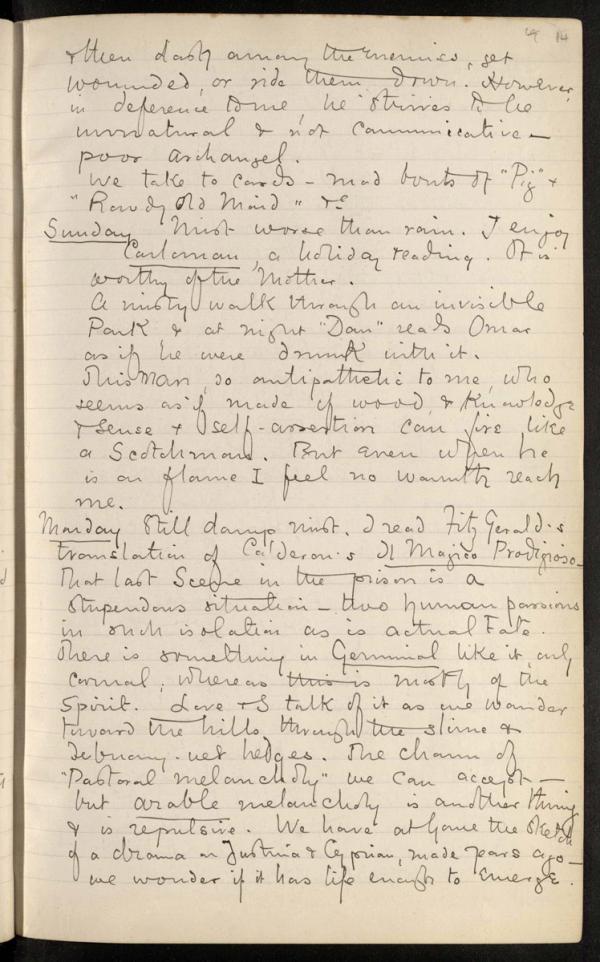 14
& then dash among the enemies, get
wounded, or ride them down. However,
in deference to me, he strives to be
unnatural & not communicative —
poor archangel.
We take to cards – mad bouts of "Pig" &
"Rowdy Old Maid" &c
Sunday Mist worse than rain. I enjoy
Carloman, a holiday reading. It is
worthy of the Mother.
A misty walk through an invisible
Park & at night "Dan" reads Omar
as if he were drunk with it.
This Man, so antipathetic to me, who
seems as if made of wood, & knowledge
& sense & self-assertion can fire like
a Scotchman. But even when he
is on flame I feel no warmth reach
me.
Monday Still damp mist. I read FitzGerald's
translation of Calderon's Il Magico Prodigioso –
That last Scene in the prison is a
stupendous situation – two human passions
in such isolation as is actual Fate.
There is something in Germinal like it, only
carnal, whereas this is mostly of the
Spirit. Love & I talk of it as we wander
toward the hills, through the slime &
February-wet hedges. The charm of
"Pastoral melancholy" we can accept —
but arable melancholy is another thing
& is repulsive. We have at home the sketch
of a drama on Justina & Cyprian, made years ago –
we wonder if it has life enough to emerge.